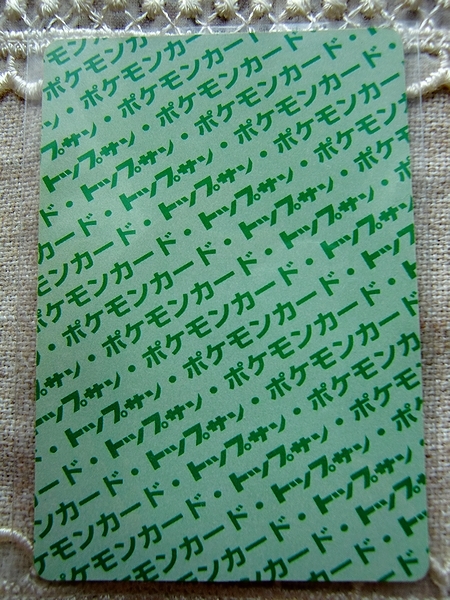 ポケモン
・ポケモンカード
プサン・ポケモンカード・
トップサン・ポケモンカード
・トップサン・ポケモンカ
ード・トップサン・ポケモン
カード・トップサン・ポケ
モンカード・トップサン・
ケモンカード・トップサン
ポケモンカード・トップサ
・ポケモンカード・トッ
サン・ポケモンカード・ト
トップサン・ポケモンカード
・トップサン・ポケモンカ
ド・トップサン・ポケモン
カード・トップサン・ポ
ンカード・トップサン・
ケモンカード・トップサン
ポケモンカード・ト
ポケモンカード